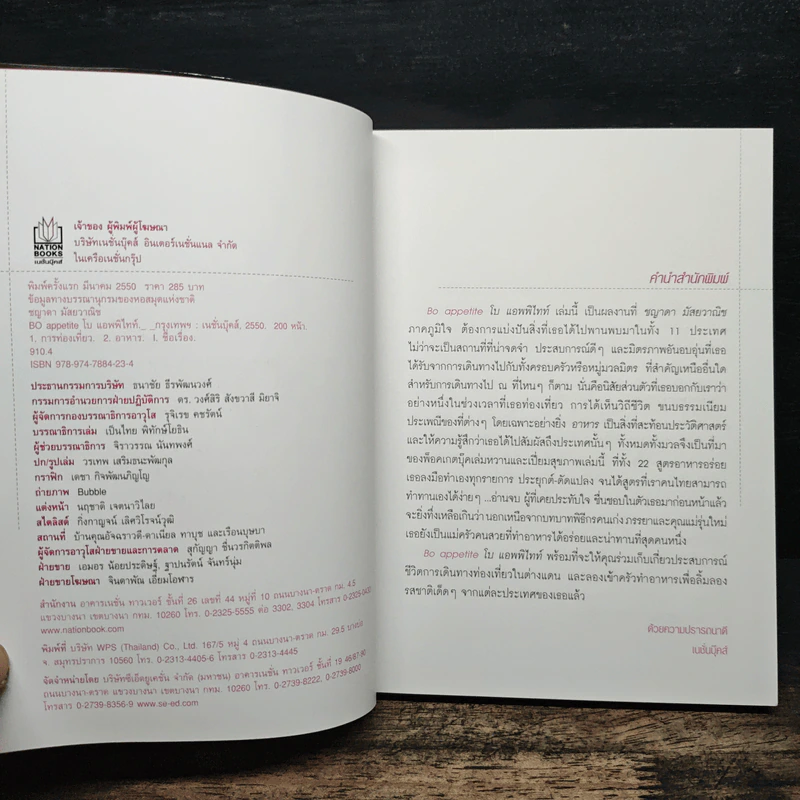 NATION
BOOKS
เนชั่นบุ๊คส์
เจ้าของ ผู้พิมพ์ผู้โฆษณา
บริษัทเนชั่นบุ๊คส์ อินเตอร์เนชั่นแนล จำกัด
ในเครือเนชั่นกรุ๊ป
พิมพ์ครั้งแรก มีนาคม 2550 ราคา 285 บาท
ข้อมูลทางบรรณานุกรมของหอสมุดแห่งชาติ
ชญาดา มัสยวาณิช
BO appetite โบ แอพพิไทท์._ _กรุงเทพฯ : เนชั่นบุ๊คส์, 2550. 200 หน้า.
1. การท่องเที่ยว. 2. อาหาร. I. ชื่อเรื่อง.
910.4
ISBN 978-974-7884-23-4
ประธานกรรมการบริษัท ธนาชัย ธีรพัฒนวงศ์
กรรมการอำนวยการฝ่ายปฏิบัติการ ดร. วงศ์สิริ สังขวาสี มิยาจิ
ผู้จัดการกองบรรณาธิการอาวุโส รุจิเรข คชรัตน์
บรรณาธิการเล่ม เป็นไทย พิทักษ์โยธิน
ผู้ช่วยบรรณาธิการ จิราวรรณ นันทพงศ์
ปก/รูปเล่ม วรเทพ เสริมธนะพัฒกุล
กราฟิก เดชา กิจพัฒนภิญโญ
ถ่ายภาพ Bubble
แต่งหน้า นฤชาติ เจตนาวิไลย
สไตลิสต์ กิ่งกาญจน์ เลิศวิโรจน์วุฒิ
สถานที่ บ้านคุณอัจฉราวดี-ดาเนียล ทาบุช และเรือนบุษบา
ผู้จัดการอาวุโสฝ่ายขายและการตลาด สุกัญญา ชื่นวรกิตติพล
ฝ่ายขาย เอมอร น้อยประดิษฐ์, ฐาปนรัตน์ จันทร์นุ่ม
ฝ่ายขายโฆษณา จินตาพัณ เอี่ยมโอฬาร
สำนักงาน อาคารเนชั่น ทาวเวอร์ ชั้นที่ 26 เลขที่ 44 หมู่ที่ 10 ถนนบางนา-ตราด กม. 4.5
แขวงบางนา เขตบางนา กทม. 10260 โทร. 0-2325-5555 ต่อ 3302, 3304 โทรสาร
www.nationbook.com
พิมพ์ที่ บริษัท WPS (Thailand) Co., Ltd. 167/5 หมู่ 4 ถนนบางนา-ตราด กม. 29.5 บางบ่อ
จ. สมุทรปราการ 10560 โทร. 0-2313-4405-6 โทรสาร 0-2313-4445
จัดจำหน่ายโดย บริษัทซีเอ็ดยูเคชั่น จำกัด (มหาชน) อาคารเนชั่น ทาวเวอร์ ชั้นที่ 19
ถนนบางนา-ตราด แขวงบางนา เขตบางนา กทม. 10260 โทร. 0-2739-8222, 0-2739-8000
โทรสาร 0-2739-8356-9 www.se-ed.com
คำนำสำนักพิมพ์
Bo appetite โบ แอพพิไทท์ เล่มนี้ เป็นผลงานที่ ชญาดา มัสยวาณิช
ภาคภูมิใจ ต้องการแบ่งปันสิ่งที่เธอได้ไปพานพบมาในทั้ง 11 ประเทศ
ไม่ว่าจะเป็นสถานที่ที่น่าจดจำ ประสบการณ์ดีๆ และมิตรภาพอันอบอุ่นที่เธอ
ได้รับจากการเดินทางไปกับทั้งครอบครัวหรือหมู่มวลมิตร ที่สำคัญเหนืออื่นใด
สำหรับการเดินทางไป ณ ที่ไหนๆ ก็ตาม นั่นคือนิสัยส่วนตัวที่เธอบอกกับเราว่า
อย่างหนึ่งในช่วงเวลาที่เธอท่องเที่ยว การได้เห็นวิถีชีวิต ขนบธรรมเนียม
ประเพณีของที่ต่างๆ โดยเฉพาะอย่างยิ่ง อาหาร เป็นสิ่งที่สะท้อนประวัติศาสตร์
และให้ความรู้สึกว่าเธอได้ไปสัมผัสถึงประเทศนั้นๆ ทั้งหมดทั้งมวลจึงเป็นที่มา
ของพ็อคเกตบุ๊คเล่มหวานและเปี่ยมสุขภาพเล่มนี้ ที่ทั้ง 22 สูตรอาหารอร่อย
เธอลงมือทำเองทุกรายการ ประยุกต์-ดัดแปลง จนได้สูตรที่เราคนไทยสามารถ
ทำทานเองได้ง่ายๆ ...อ่านจบ ผู้ที่เคยประทับใจ ชื่นชอบในตัวเธอมาก่อนหน้าแล้ว
จะยิ่งทึ่งเหลือเกินว่า นอกเหนือจากบทบาทพิธีกรคนเก่ง ภรรยาและคุณแม่รุ่นใหม่
เธอยังเป็นแม่ครัวคนสวยที่ทำอาหารได้อร่อยและน่าทานที่สุดคนหนึ่ง
Bo appetite โบ แอพพิไทท์ พร้อมที่จะให้คุณร่วมเก็บเกี่ยวประสบการณ์
ชีวิตการเดินทางท่องเที่ยวในต่างแดน และลองเข้าครัวทำอาหารเพื่อลิ้มลอง
รสชาติเด็ดๆ จากแต่ละประเทศของเธอแล้ว
ด้วยความปรารถนาดี
เนชั่นบุ๊คส์